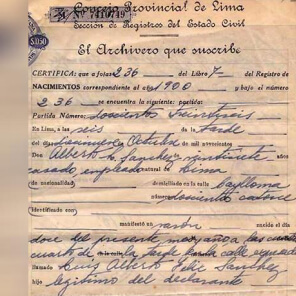 Concejo Provincial de Lima
Nº 7410749
Sección de Registros del Estado Civil
El Archivero que suscribe
CERTIFICA: que a fojas 236 del Libro 7 del Registro de
NACIMIENTOS correspondiente al año 1900 y bajo el número
236 se encuentra la siguiente partida:
Partida Número doscientos treintiseis
En Lima, a las seis de la tarde
de mil novecientos
Don Alberto Sanchez
casado, empleado Lima
de nacionalidad domiciliado en la calle Caylloma
doscientos catorce
Identificado con
manifestó un varón nacido el día
doce del presente mes y año a las cuatro
cuarto de la tarde calle
llamado Luis Alberto Felix Sanchez
hijo legítimo del declarante